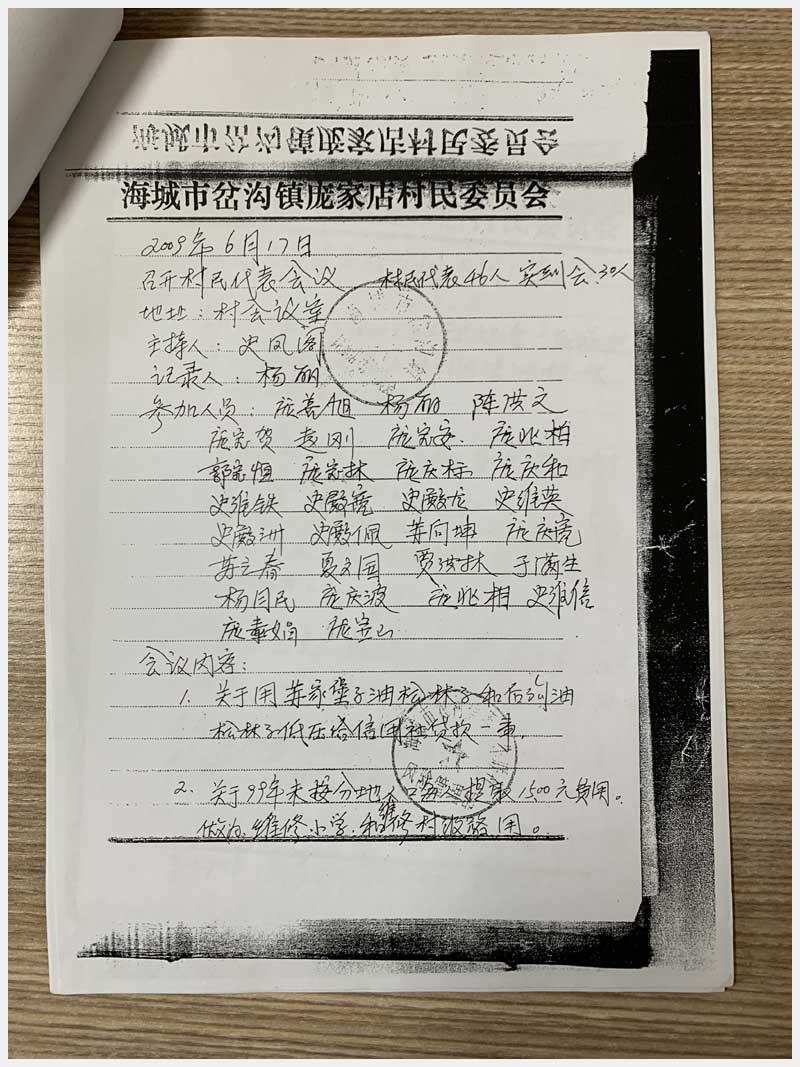 海城市岔沟镇庞家店村民委员会
海城市岔沟镇庞家店村民委员会
2009年6月17日
召开村民代表会议 村民代表46人 实到会30人
地址:村会议室
主持人:史凤阁
记录人:杨丽
参加人员:庞善旭 杨丽 陈洪文
庞宪贺 赵刚 庞宪安 庞兆柏
郭宪恒 庞宪林 庞庆标 庞庆和
史维铁 史殿亮 史殿龙 史维英
史殿洲 史殿佩 苏向坤 庞庆亮
苏立春 夏文国 贾洪林 于满生
杨日民 庞庆波 庞兆相 史维信
庞春娟 庞宝山
会议内容:
1. 关于用苏家堡子油松林子和后沟油
松林子低压给信用社贷款一事。
2. 关于99年未接分地人口每人提取1500元费用。
做为维修小学和维修村级路用。